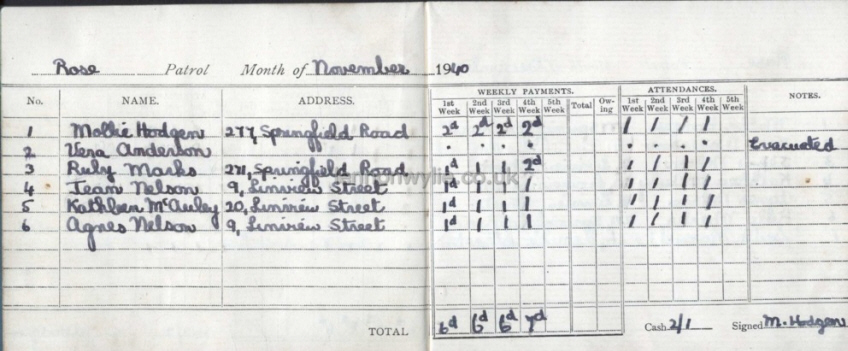 Rose Patrol Month of November 1940
WEEKLY PAYMENTS. ATTENDANCES.
No. NAME. ADDRESS. 1st Week 2nd Week 3rd Week 4th Week 5th Week Total Ow-ing 1st Week 2nd Week 3rd Week 4th Week 5th Week NOTES.
1 Mollie Hodgen 277, Springfield Road 2d 2d 2d 2d 1 1 1 1
2 Vera Anderson . . . . . . . . Evacuated
3 Ruby Marks 271, Springfield Road 1d 1 1 2d 1 1 1 1
4 Jean Nelson 9, Liniview Street 1d 1 1 1 1 1 1 1
5 Kathleen McAuley 20, Liniview Street 1d 1 1 1 1 1 1 1
6 Agnes Nelson 9, Liniview Street 1d 1 1 1 1 1 1 1
TOTAL 6d 6d 6d 7d Cash 2/1 Signed M. Hodgen